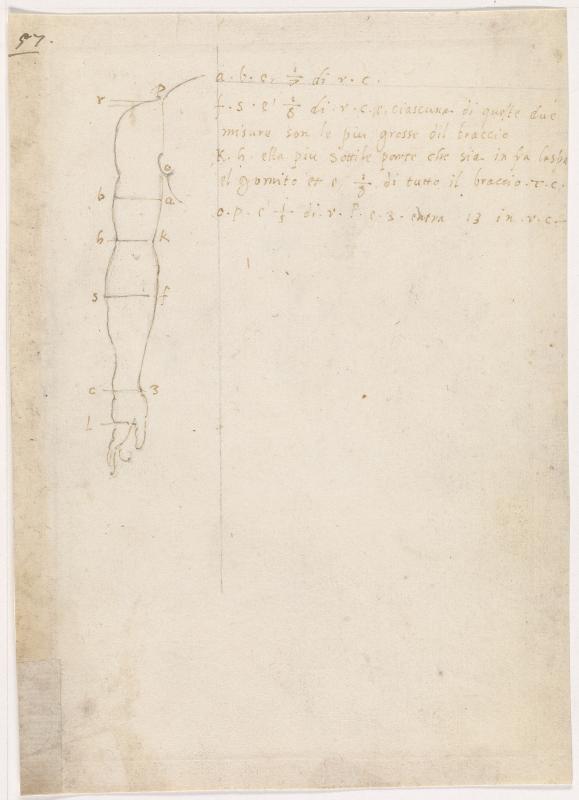 57.
a. b. e. 1/7 di r. c.
f. s. e' 1/8 di r. c. e. ciascuna di queste due
misure son le piu grosse dil braccio
K. h. e la piu sottile parte che sia in fra la
el gomito et e 1/9 di tutto il braccio. r. c.
o. p. e 1/5 di r. l. e. 3. entra 13 in r. c.
r
P
o
b
a
h
K
s
f
c
3
l